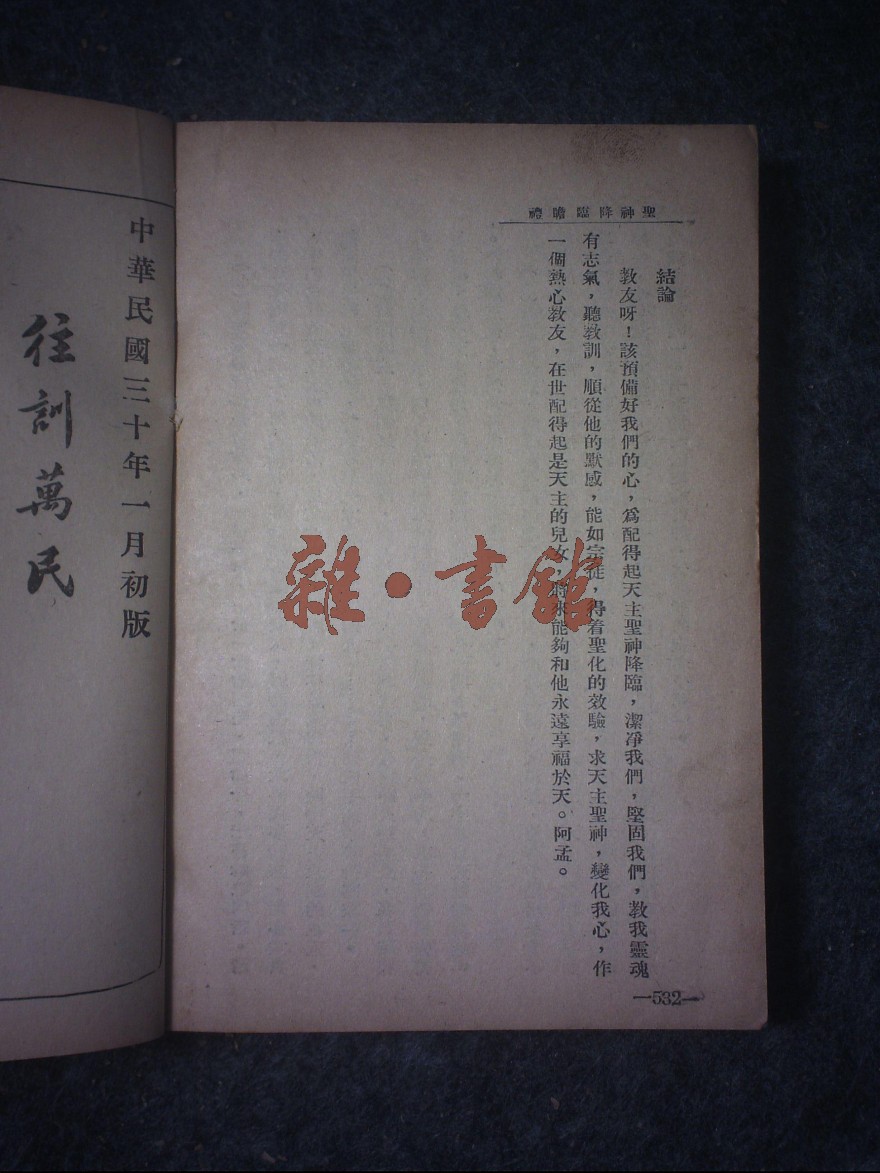 聖神降臨瞻禮
結論
教友呀！該預備好我們的心，爲配得起天主聖神降臨，潔凈我們，堅固我們，教我靈魂
有志氣，聽教訓，順從他的默感，能如宗徒，得着聖化的效驗，求天主聖神，變化我心，作
一個熱心教友，在世配得起是天主的兒女，將來能夠和他永遠享福於天。阿孟。
—532—
中華民國三十年一月初版
往訓萬民
雜·書館